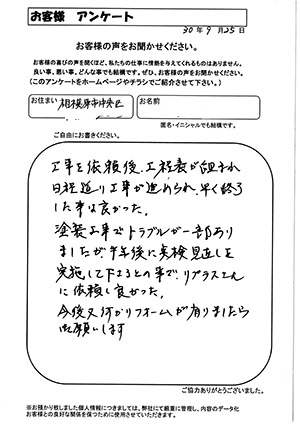 お客様 アンケート
30年9月25日
お客様の声をお聞かせください。
お客様の喜びの声を聞くほど、私たちの仕事に情熱を与えてくれるものはありません。
良い事、悪い事、どんな事でも結構です。ぜひ、お客様の声をお聞かせください。
(このアンケートをホームページやチラシでご紹介させて下さい。)
お住まい 相模原市中央区 お名前
匿名・イニシャルでも結構です。
ご自由にお書きください。
工事を依頼後、工程表が組まれ
日程通り工事が進められ、早く終了
した事は良かった。
塗装工事でトラブルが一部あり
ましたが、半年後に実検見直しを
実施して下さるとの事で、リプラスさん
に依頼し良かった。
今後又何かリフォームが有りましたら
御願いします
ご協力ありがとうございました。
※お預かり致しました個人情報につきましては、弊社にて厳重に管理し、内容のデータ化
お客様との良好な関係を保つために使用させていただきます。